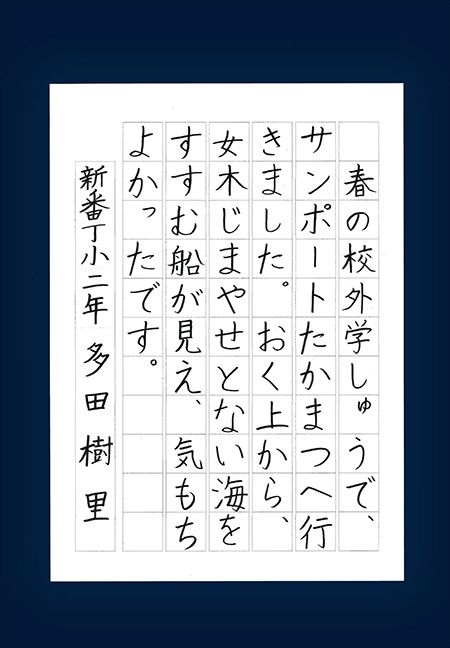 春の校外学しゅうで、
サンポートたかまつへ行
きました。おく上から、
女木じまやせとない海を
すすむ船が見え、気もち
よかったです。
新番丁小二年 多田樹里